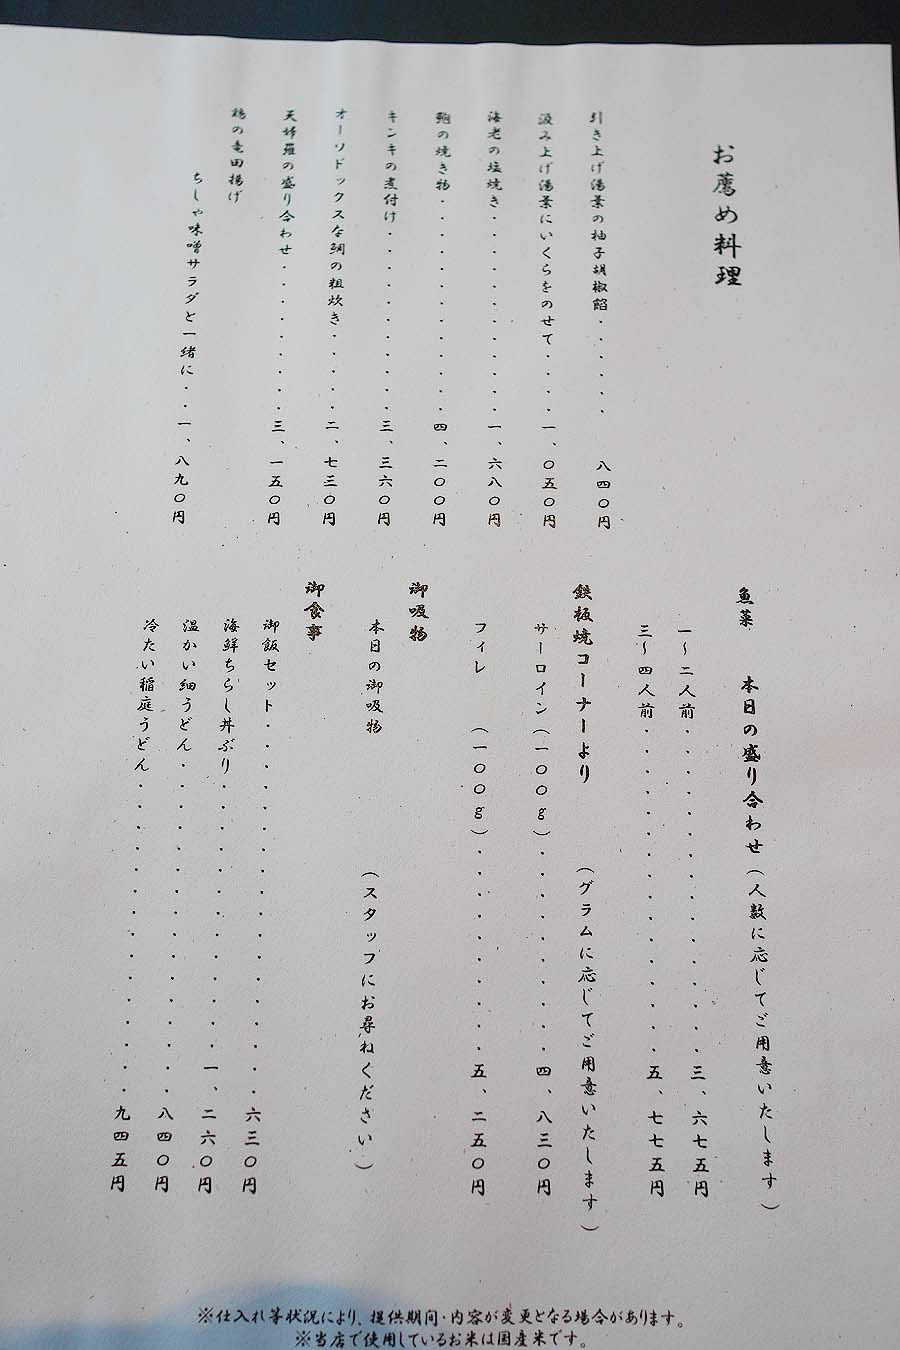 お薦め料理
引き上げ湯葉の柚子胡椒餡・・・・・・八四〇円
汲み上げ湯葉にいくらをのせて・・・・一、〇五〇円
海老の塩焼き・・・・・・・・・・・・一、六八〇円
鮑の焼き物・・・・・・・・・・・・・四、二〇〇円
キンキの煮付け・・・・・・・・・・・三、三六〇円
オーソドックスな鯛の粗炊き・・・・・二、七三〇円
天婦羅の盛り合わせ・・・・・・・・・三、一五〇円
鶏の竜田揚げ
ちしゃ味噌サラダと一緒に・・・一、八九〇円
魚菜 本日の盛り合わせ(人数に応じてご用意いたします)
一〜二人前・・・・・・・・・・・・・・・・三、六七五円
三〜四人前・・・・・・・・・・・・・・・・五、七七五円
鉄板焼コーナーより (グラムに応じてご用意いたします)
サーロイン(一〇〇g)・・・・・・・・・・四、八三〇円
フィレ (一〇〇g)・・・・・・・・・・五、二五〇円
御吸物
本日の御吸物 (スタッフにお尋ねください)
御食事
御飯セット・・・・・・・・・・・・・・・・・・六三〇円
海鮮ちらし丼ぶり・・・・・・・・・・・・・・一、二六〇円
温かい細うどん・・・・・・・・・・・・・・・・八四〇円
冷たい稲庭うどん・・・・・・・・・・・・・・・九四五円
※仕入れ等状況により、提供期間・内容が変更となる場合があります。
※当店で使用しているお米は国産米です。